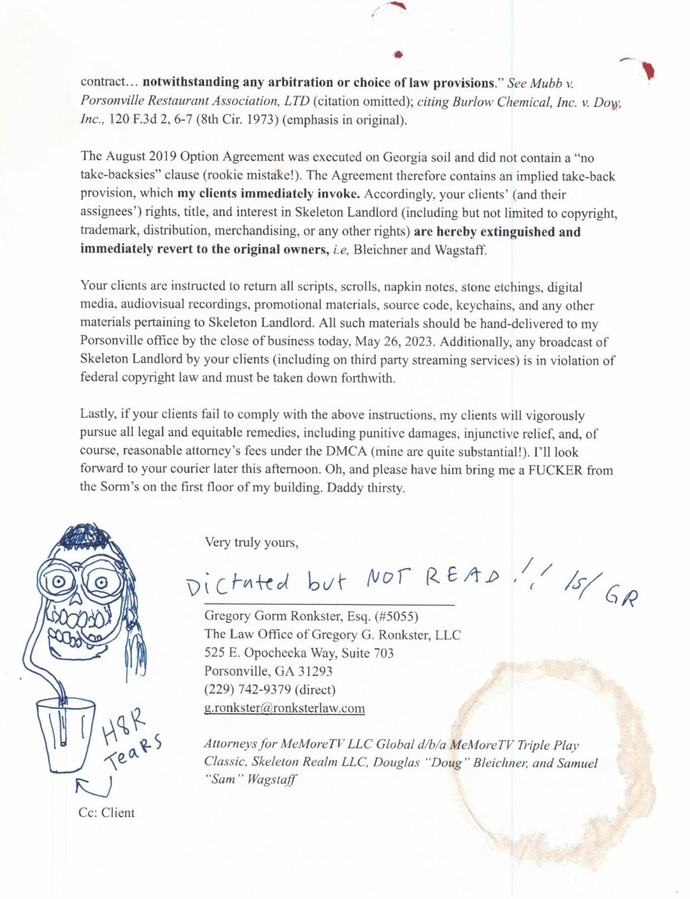 contract… notwithstanding any arbitration or choice of law provisions.” See Mubb v.
Porsonville Restaurant Association, LTD (citation omitted); citing Burlow Chemical, Inc. v. Dow,
Inc., 120 F.3d 2, 6-7 (8th Cir. 1973) (emphasis in original).
The August 2019 Option Agreement was executed on Georgia soil and did not contain a “no
take-backsies” clause (rookie mistake!). The Agreement therefore contains an implied take-back
provision, which my clients immediately invoke. Accordingly, your clients’ (and their
assignees’) rights, title, and interest in Skeleton Landlord (including but not limited to copyright,
trademark, distribution, merchandising, or any other rights) are hereby extinguished and
immediately revert to the original owners, i.e, Bleichner and Wagstaff.
Your clients are instructed to return all scripts, scrolls, napkin notes, stone etchings, digital
media, audiovisual recordings, promotional materials, source code, keychains, and any other
materials pertaining to Skeleton Landlord. All such materials should be hand-delivered to my
Porsonville office by the close of business today, May 26, 2023. Additionally, any broadcast of
Skeleton Landlord by your clients (including on third party streaming services) is in violation of
federal copyright law and must be taken down forthwith.
Lastly, if your clients fail to comply with the above instructions, my clients will vigorously
pursue all legal and equitable remedies, including punitive damages, injunctive relief, and, of
course, reasonable attorney’s fees under the DMCA (mine are quite substantial!). I’ll look
forward to your courier later this afternoon. Oh, and please have him bring me a FUCKER from
the Sorm’s on the first floor of my building. Daddy thirsty.
Very truly yours,
Dictated but NOT READ!! /s/ GR
Gregory Gorm Ronkster, Esq. (#5055)
The Law Office of Gregory G. Ronkster, LLC
525 E. Opocheeka Way, Suite 703
Porsonville, GA 31293
(229) 742-9379 (direct)
g.ronkster@ronksterlaw.com
H8R
Tears
Attorneys for MeMoreTV LLC Global d/b/a MeMoreTV Triple Play
Classic, Skeleton Realm LLC, Douglas “Doug” Bleichner, and Samuel
“Sam” Wagstaff
Cc: Client